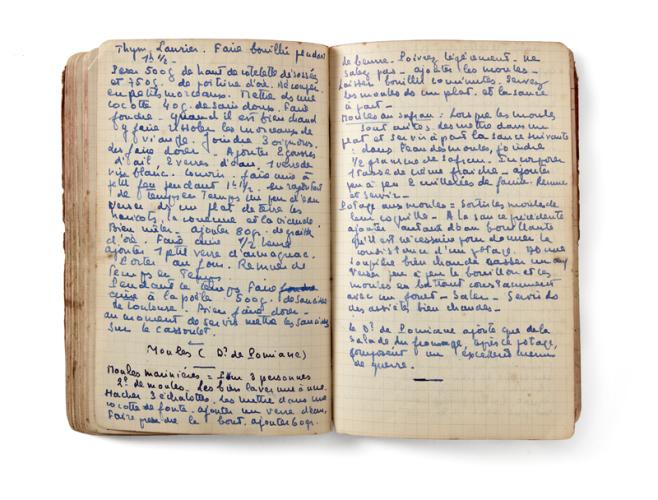 Thym, Laurier. Faire bouillir pendant
1h ½ -
Peser 500g de haut de cotelette désossées
et 750g. de poitrine d'oie. Découper
en petits morceaux. Mettre ds une
cocotte 40g. de saindoux. Faire
fondre - quand il est bien chaud
y faire rissoler les morceaux de
viande. Joindre 3 oignons
les faire dorer - Ajouter 2 gousses
d'ail. 2 verres d'eau 1 verre de
vin blanc. Couvrir. faire cuire à
petit feu pendant 1h ½ - en rajoutant
de temps en temps un peu d'eau
Verser ds un plat de terre les
haricots, la couenne et la viande
Bien mêler - ajouter 80gr. de graisse
d'oie. Faire cuire ½ heure
ajouter 1 petit verre d'armagnac.
Porter au four. Remuer de
temps en temps
Pendant ce temps faire
cuire à la poêle 500g. de saucisses
de Toulouse. Bien faire dorer -
au moment de servir mettre les saucisses
sur le cassoulet.
Moules (Dr de Pomiane)
Moules marinières = Pour 3 personnes
2l. de moules. les bien laver une à une.
Hacher 3 échalottes. les mettre dans une
cocotte de fonte. ajouter un verre d'eau,
Faire prendre le bout. ajouter 60gr.
de beurre. Poivrez légèrement. ne
salez pas - ajoutez les moules -
Laisser bouillir 10 minutes. Servez
les moules ds un plat. et la sauce
à part -
Moules au safran : Lorsque les moules
sont cuites. les mettre dans un
plat et servir à part la sauce suivante
: dans l'eau des moules, joindre
½ gramme de safran. Incorporer
1 tasse de crème fraiche - ajouter
peu à peu 2 cuillerées de farine. Remuer
et servir -
Potage aux moules = sortir les moules de
leur coquille - A la sauce précédente
ajouter autant d'eau bouillante
qu'il est nécessaire pour donner la
consistance d'un potage. Ds une
soupière bien chaude casser un œuf
verser peu à peu le bouillon et les
moules en battant constamment
avec un fouet - Saler - Servir ds
des assiettes bien chaudes -
Le Dr de Pomiane ajoute que de la
salade du fromage, après ce potage,
composent un excellent menu
de guerre.